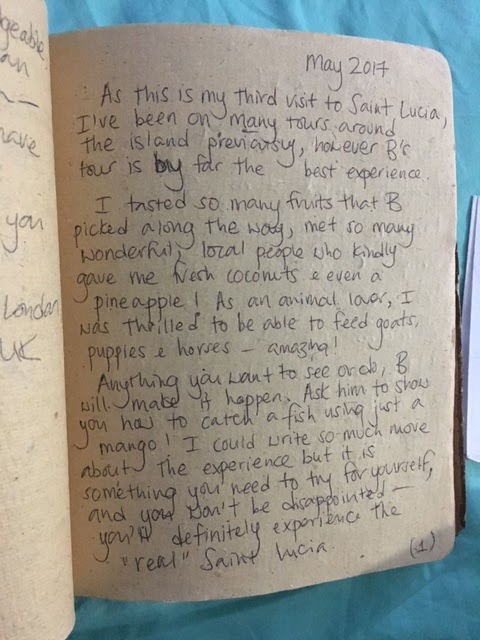 geable
an
have
you
London
UK
May 2017
As this is my third visit to Saint Lucia,
I've been on many tours around
the island previously, however B's
tour is by far the best experience.
I tasted so many fruits that B
picked along the way, met so many
wonderful, local people who kindly
gave me fresh coconuts & even a
pineapple! As an animal lover, I
was thrilled to be able to feed goats,
puppies & horses – amazing!
Anything you want to see or do, B
will make it happen. Ask him to show
you how to catch a fish using just a
mango! I could write so much more
about the experience but it is
something you need to try for yourself,
and you won't be disappointed –
you'll definitely experience the
"real" Saint Lucia.
(1)